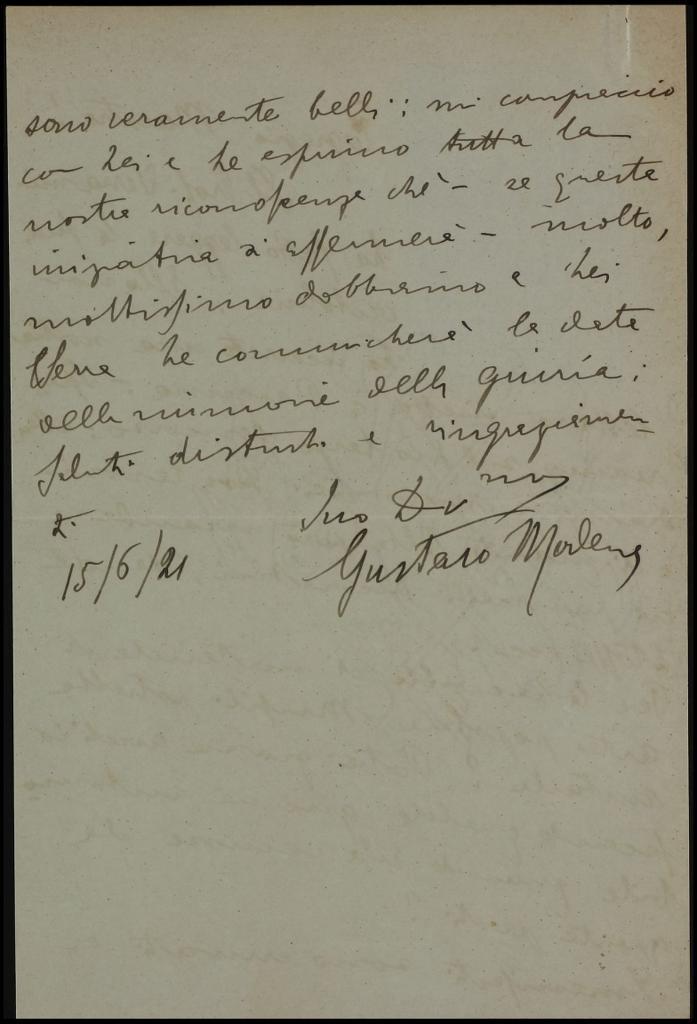 sono veramente belli; mi compiaccio
con Lei e Le esprimo tutta la
nostra riconoscenza chè - se questa
iniziativa si affermerà - molto,
moltissimo dobbiamo a Lei
Le comunicherà la data
della riunione della giuria;
Saluti distinti e ringraziamen-
ti
Suo Dv mo
Gustavo Modena
15/6/21